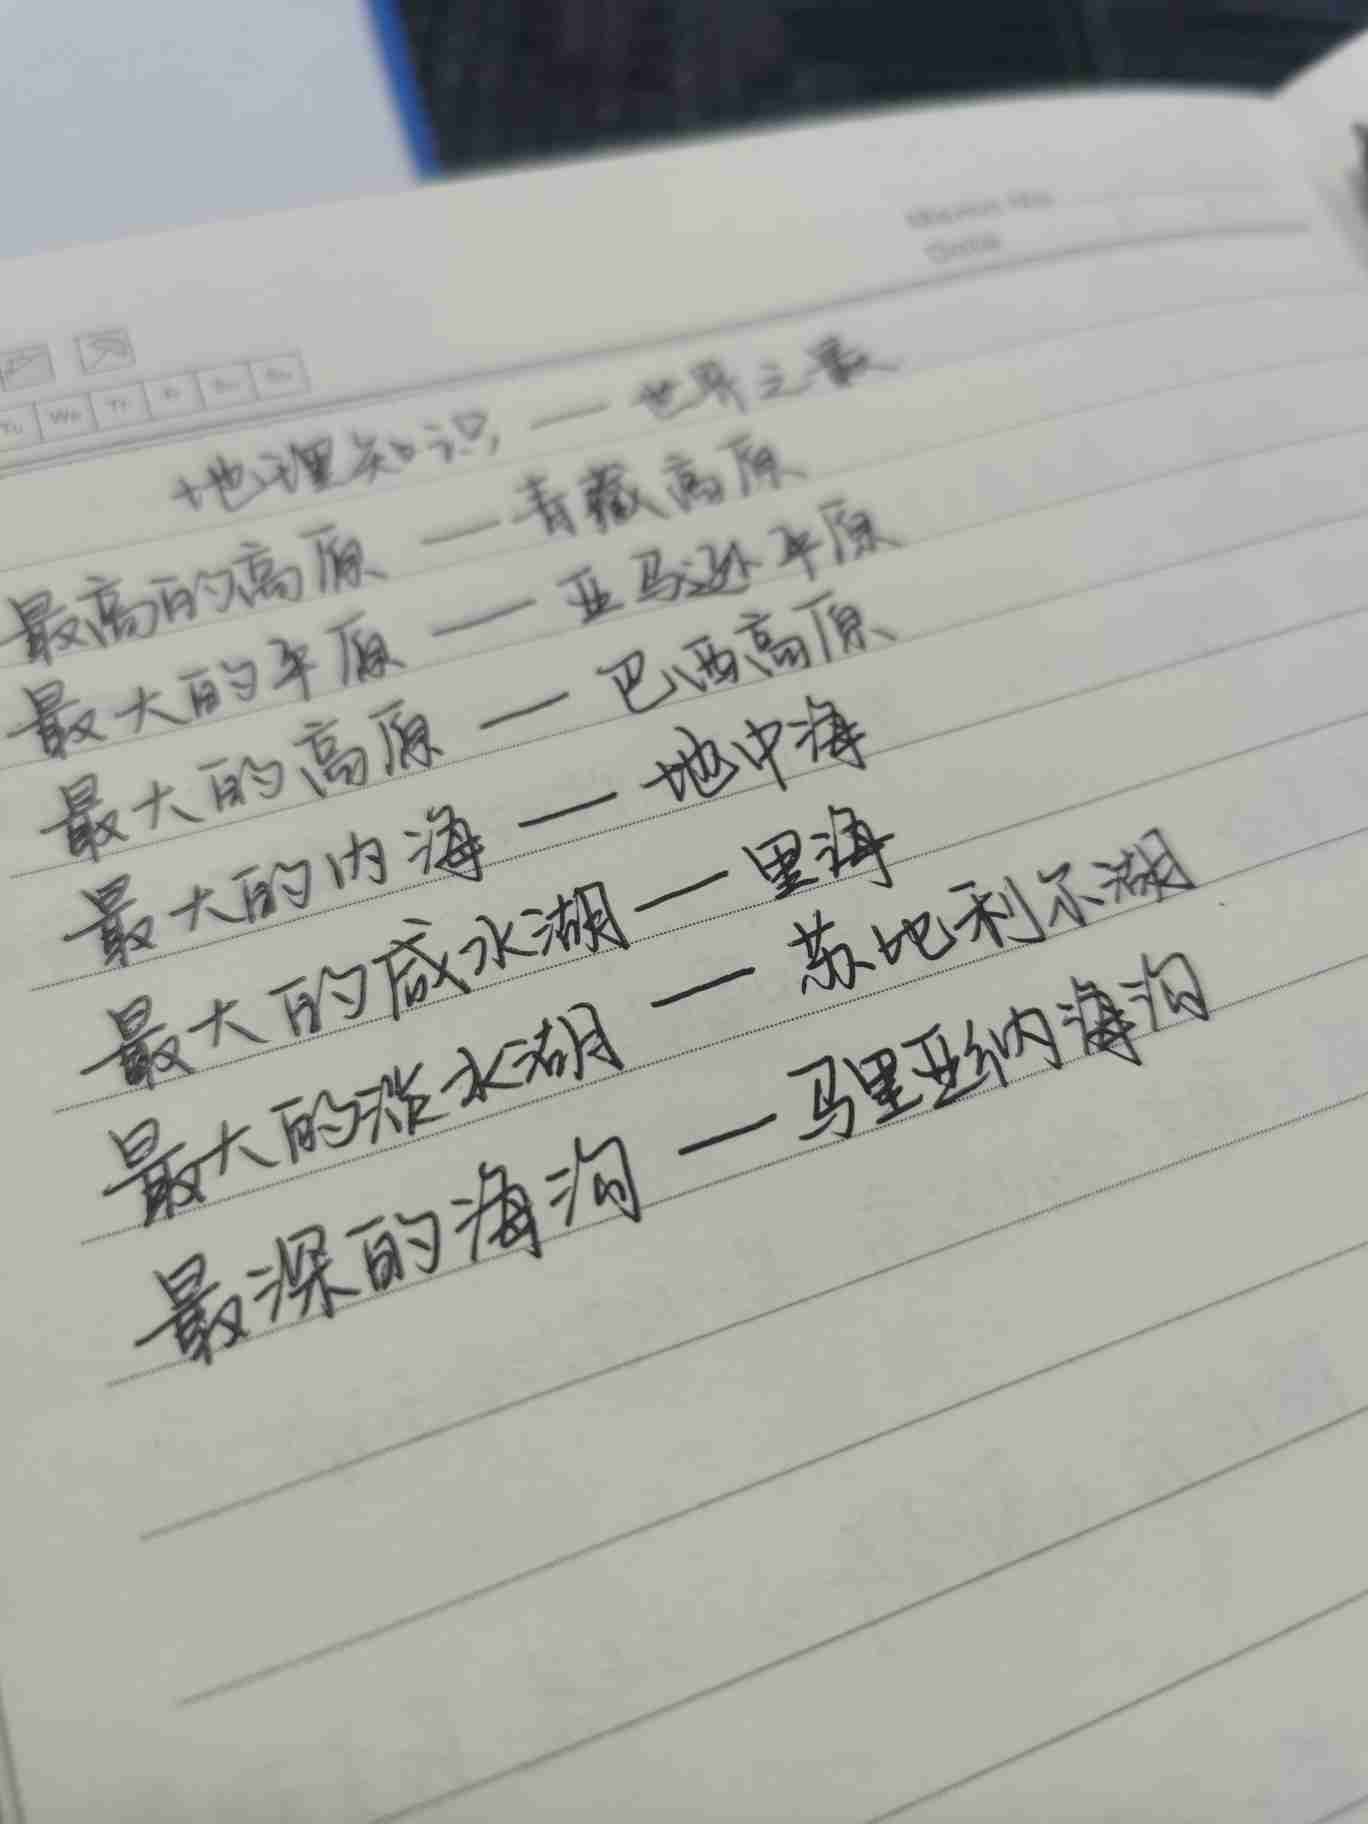 Tu We Th Fr Sa Su
地理知识 — 世界之最
最高的高原 — 青藏高原
最大的平原 — 亚马逊平原
最大的高原 — 巴西高原
最大的内海 — 地中海
最大的咸水湖 — 里海
最大的淡水湖 — 苏地利尔湖
最深的海沟 — 马里亚纳海沟